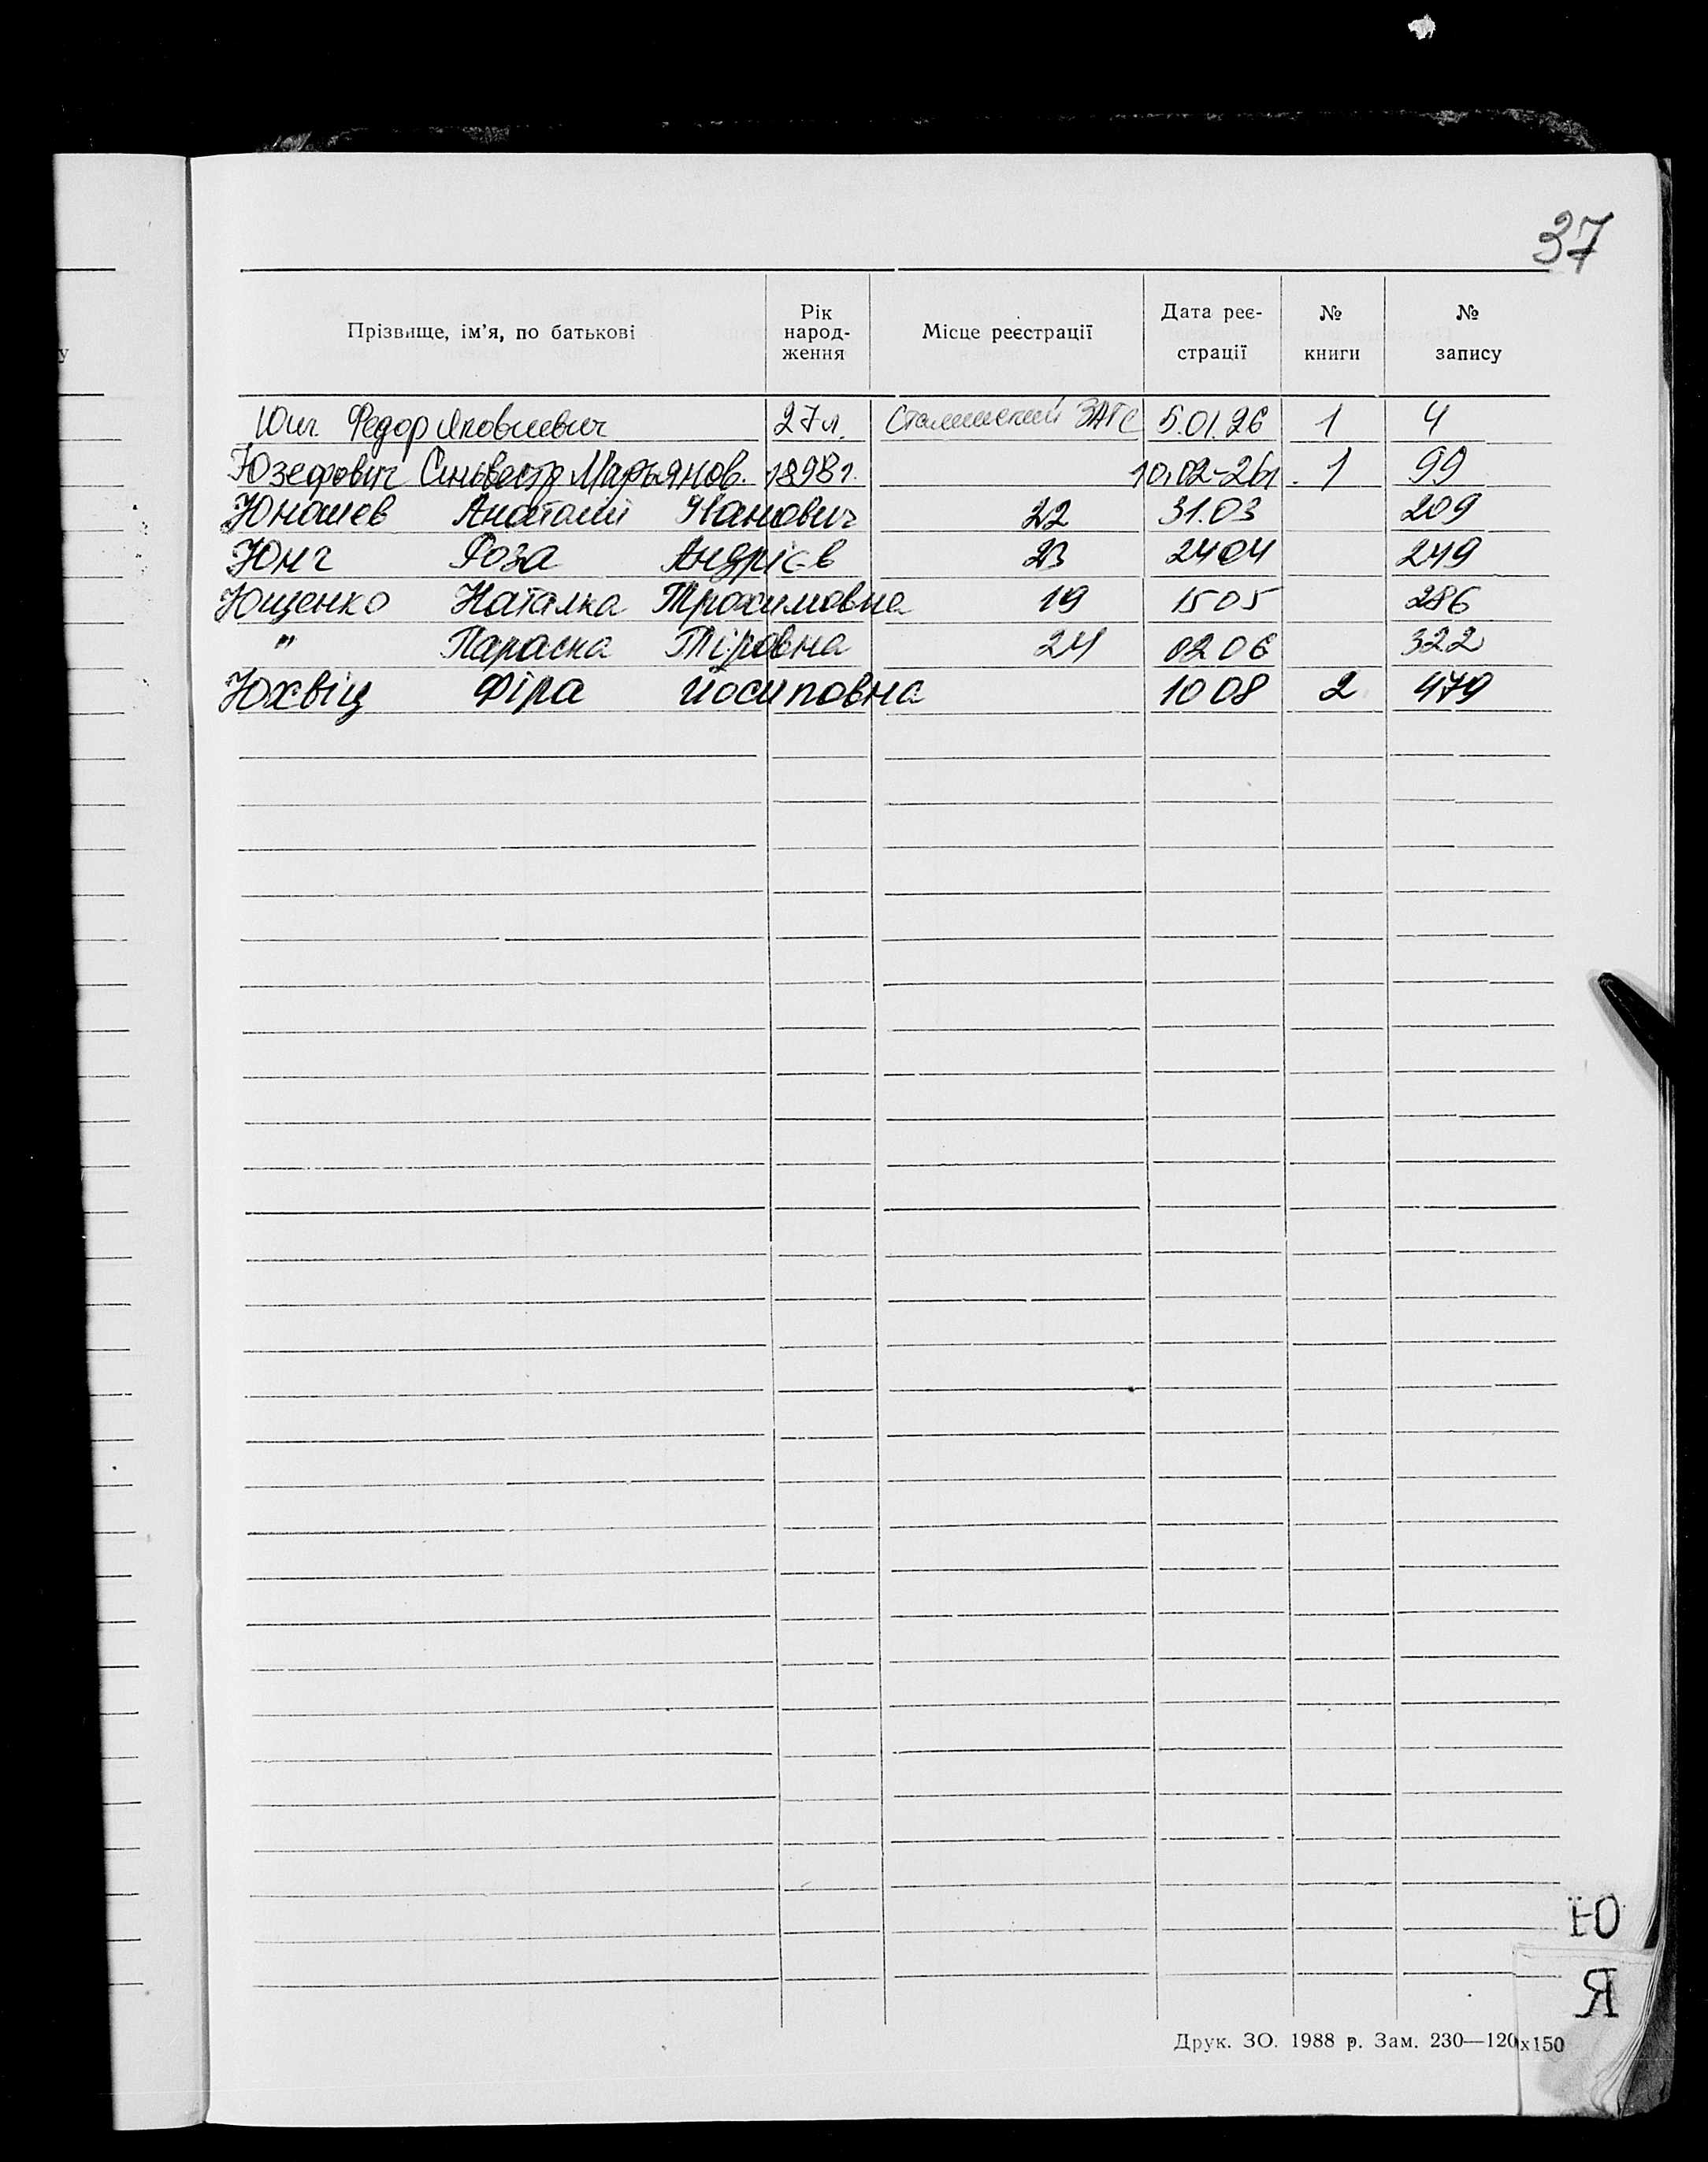 37
Прізвище, ім'я, по батькові | Рік народження | Місце реєстрації | Дата реєстрації | № книги | № запису
Юнг Федор Яковлевич 27 л. Сталинский ЗАГС 5.01.26 1 4
Юзефович Сильвестр Марьянов. 1898 г. 10.02-26 1 99
Юношев Анатолій Іванович 22 31.03 209
Юнг Роза Андрієв 23 24 04 249
Ющенко Наталка Трохимовна 19 15 05 286
" Параска 24 02 06 322
Юхвіц Фіра Йосиповна 10 08 2 479
Ю
Я
Друк. ЗО. 1988 р. Зам. 230—120х150
у